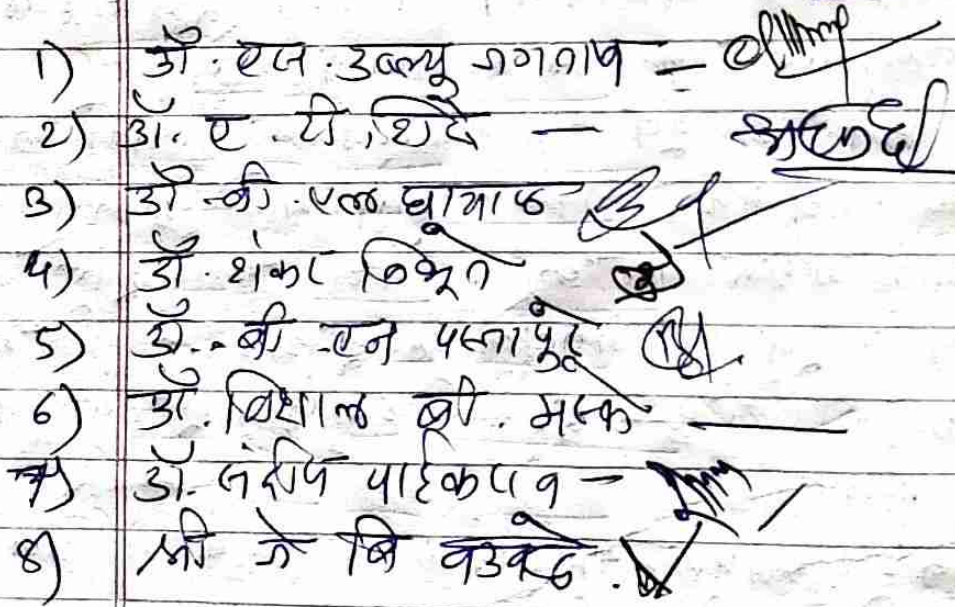 1) डॉ. एल. डब्ल्यू जगताप —
2) डॉ. ए. टी. शिंदे —
3) डॉ बी. एल. घुमाळ
4) डॉ. शंकर विभूते
5) डॉ. बी एन पस्तापुरे
6) डॉ. विशाल बी. मस्के —
7) डॉ. संदीप पाईकराव —
8) श्री जे बि